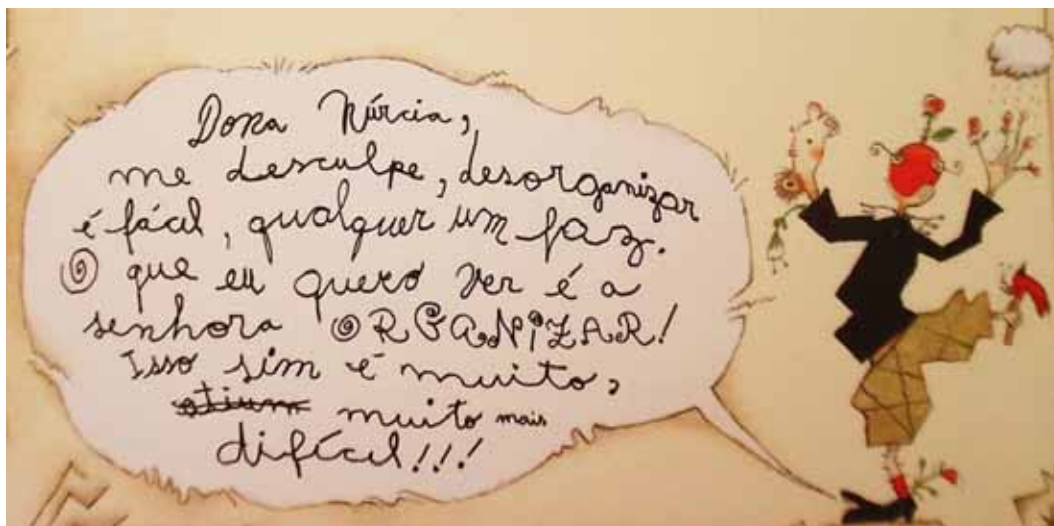 Dona Núrcia,
me desculpe, desorganizar
é fácil, qualquer um faz.
O que eu quero ver é a
senhora ORGANIZAR!
Isso sim é muito,
muito mais
difícil!!!